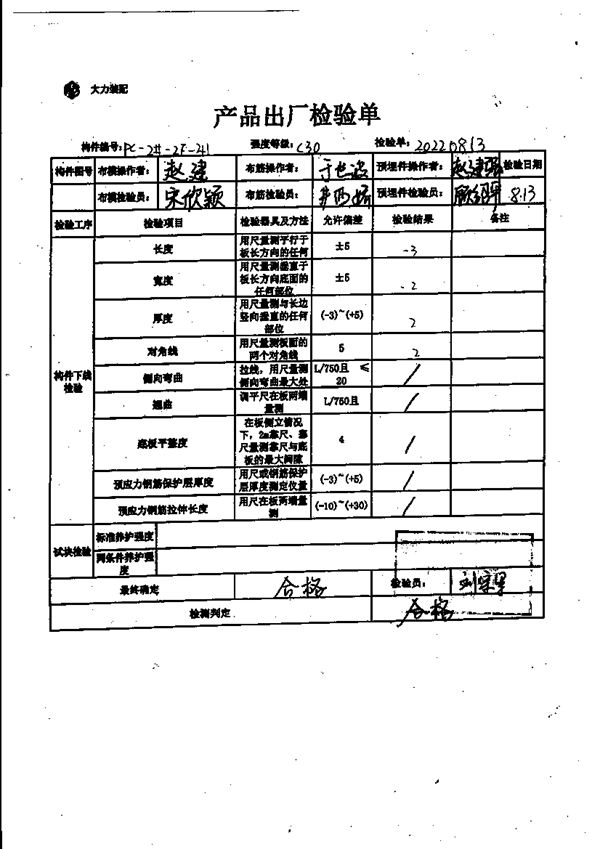 大力装配
产品出厂检验单
构件编号:PC-2#-2F-241 强度等级:C30 检验单:20220813
构件图号 布模操作者: 赵建 布筋操作者: 预埋件操作者: 赵建强 检验日期
布模检验员: 宋欣颖 布筋检验员: 预埋件检验员: 8.13
检验工序 检验项目 检验器具及方法 允许偏差 检验结果 备注
构件下线检验
长度 用尺量测平行于板长方向的任何 ±5 -3
宽度 用尺量测垂直于板长方向底面的任何部位 ±5 -2
厚度 用尺量测与长边竖向垂直的任何部位 (-3)~(+5) 2
对角线 用尺量测板面的两个对角线 5 2
侧向弯曲 拉线,用尺量测侧向弯曲最大处 L/750且 ≤20 /
翘曲 调平尺在板两端量测 L/750且 /
底板平整度 在板侧立情况下,2m靠尺、塞尺量测靠尺与底板的最大间隙 4 /
预应力钢筋保护层厚度 用尺或钢筋保护层厚度测定仪量 (-3)~(+5) /
预应力钢筋拉伸长度 用尺在板两端量测 (-10)~(+30) /
试块检验 标准养护强度
同条件养护强度
最终确定 合格 检验员:
检测判定 合格